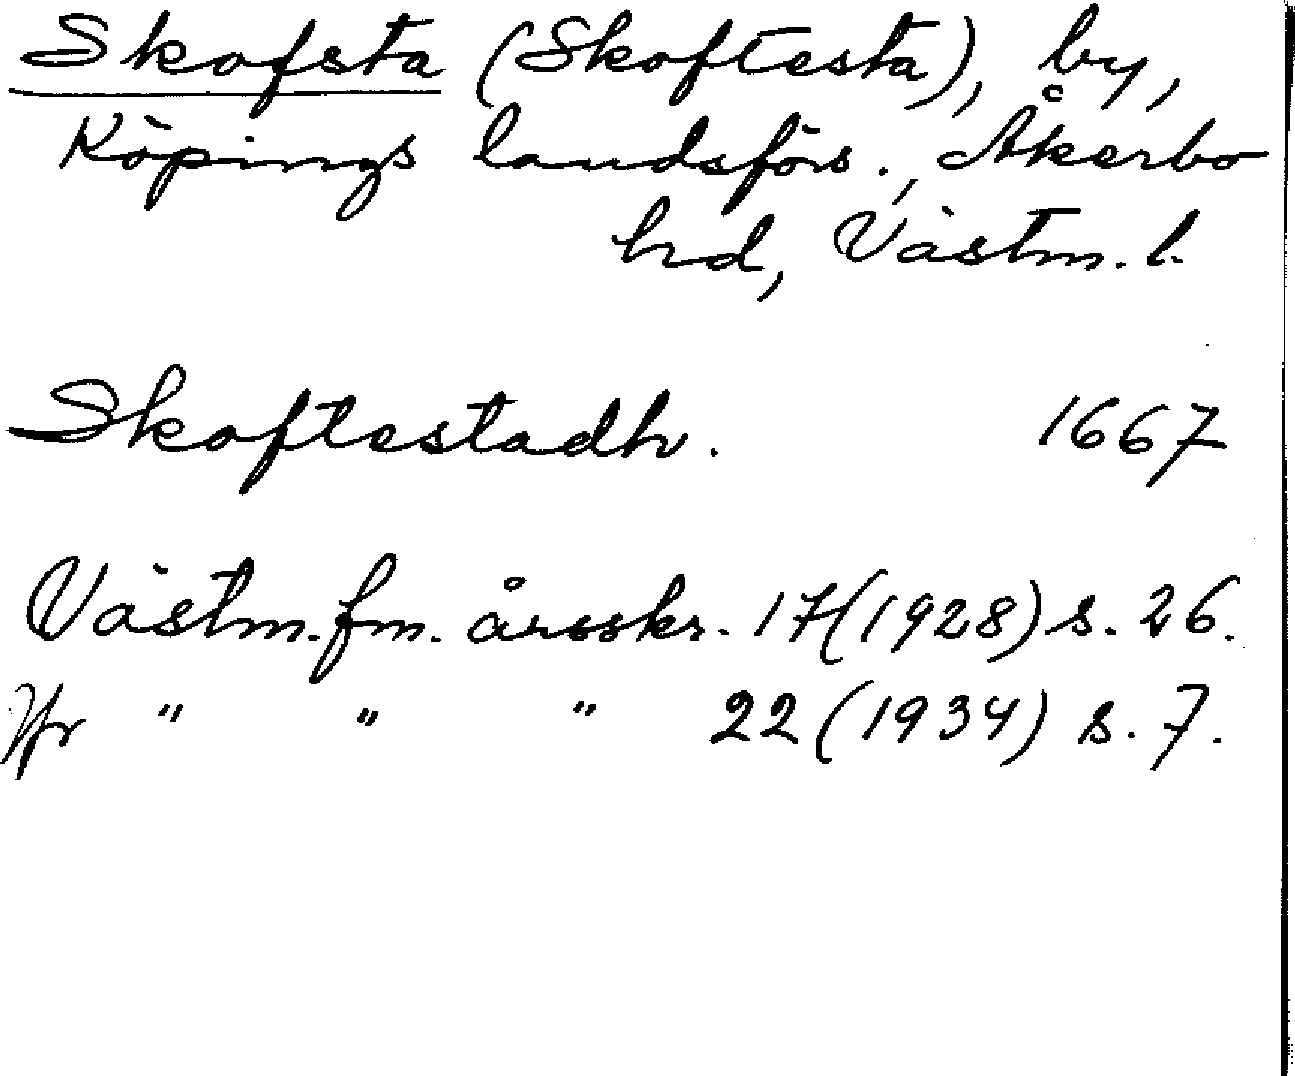 Skofsta (Skoftesta), by,
Köpings landsförs., Åkerbo
hrd, Västm. l.
Skoftestadh. 1667
Västm. fm. årsskr. 17(1928) s. 26.
Jfr " " " 22 (1934) s. 7.